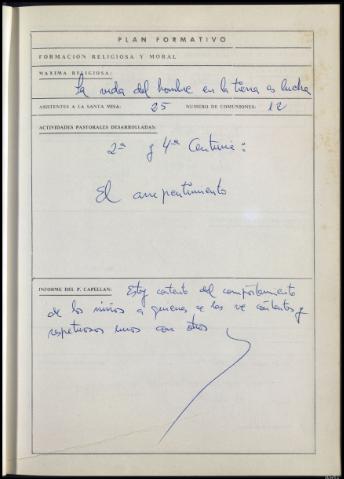 PLAN FORMATIVO
FORMACION RELIGIOSA Y MORAL
MAXIMA RELIGIOSA:
La vida del hombre en la tierra es lucha
ASISTENTES A LA SANTA MISA: 25 NUMERO DE COMUNIONES: 12
ACTIVIDADES PASTORALES DESARROLLADAS:
2ª y 4ª Centuria:
El arrepentimiento
INFORME DEL P. CAPELLAN: Estoy contento del comportamiento
de los niños a quienes se les ve contentos y
respetuosos unos con otros